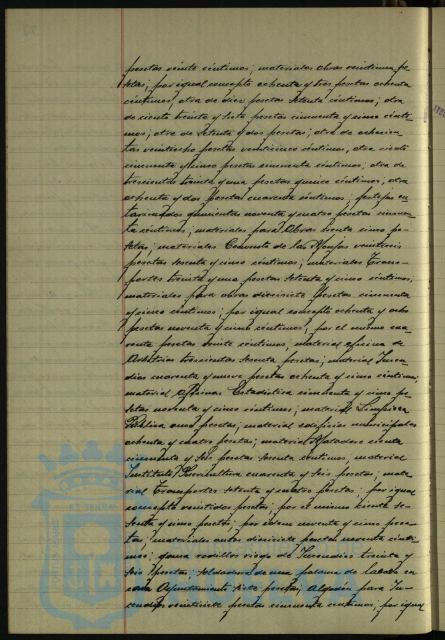 pesetas veinte céntimos; materiales obras veintiuna pe-
setas; por igual concepto ochenta y tres pesetas ochenta
céntimos; otra de diez pesetas setenta céntimos; otra
de ciento treinta y siete pesetas cincuenta y cinco cénti-
mos; otra de setenta y dos pesetas; otra de ochocien-
tas veintiocho pesetas veinticinco céntimos, otra ciento
cincuenta y cinco pesetas cincuenta céntimos; otra de
trescientas treinta y una pesetas quince céntimos, otra
ochenta y dos pesetas cuarenta céntimos; festejos en
quinientas noventa y cuatro pesetas cincuen-
ta céntimos; materiales para obras treinta cinco pe-
setas; materiales Convento de las Monjas veintiseis
pesetas sesenta y cinco céntimos; materiales Trans-
portes treinta y una pesetas setenta y cinco céntimos,
materiales para obras diecisiete pesetas cincuenta
y cinco céntimos; por igual concepto ochenta y ocho
pesetas noventa y cinco céntimos; por el mismo cua-
renta pesetas veinte céntimos, material oficina de
Arbitrios trescientas sesenta pesetas; material Incen-
dios cuarenta y nueve pesetas ochenta y cinco céntimos;
material oficinas Estadística cincuenta y cinco pe-
setas noventa y cinco céntimos; material Limpieza
Pública once pesetas; material edificios municipales
ochenta y cuatro pesetas; material Matadero ciento
cincuenta y seis pesetas sesenta céntimos, material
Instituto Puericultura cuarenta y seis pesetas; mate-
rial Transportes setenta y cuatro pesetas; por igual
concepto veintidos pesetas; por el mismo treinta se-
senta y cinco pesetas; por idem noventa y cinco pese-
tas; materiales autos diecisiete pesetas noventa cénti-
mos; goma rodillos riego de Incendios treinta y
seis pesetas; soldadura de una palanca de
Ayuntamiento siete pesetas; Algodón para In-
cendios veintisiete pesetas cincuenta céntimos, por igual